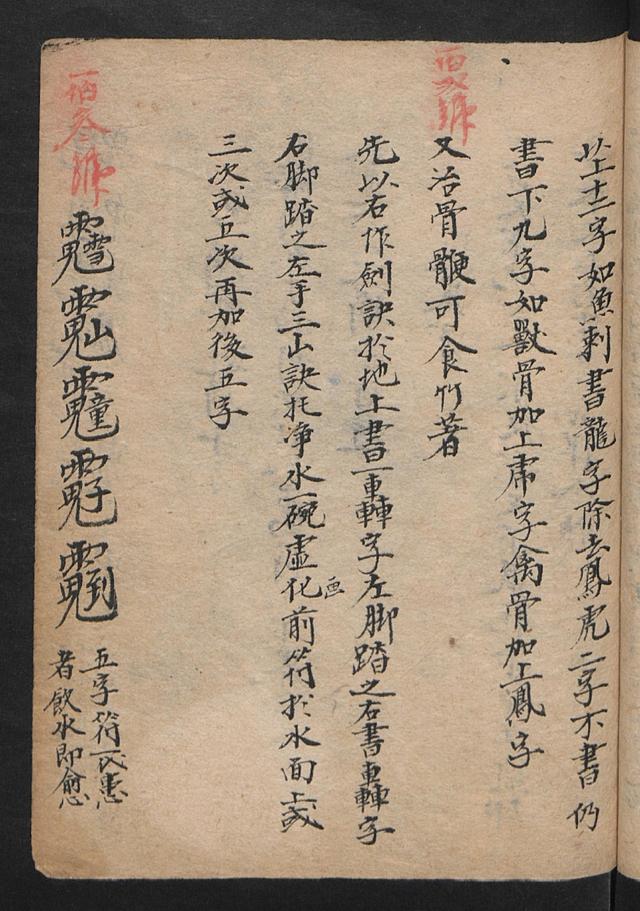 以上十二字如魚刺書龍字除去鳳虎二字不書仍
書下九字如獸骨加上虎字禽骨加上鳳字
又治骨骾可食竹著
先以右作劍訣於地上書一車轉字左脚踏之右書車轉字
右脚踏之左手三山訣托净水一碗虛化前符於水面上或
画
三次或五次再加後五字
五字符患
者飲水即愈